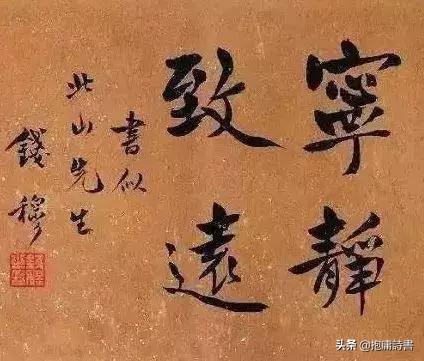 寧靜
致遠
書似
此山先生
錢穆
头条 @抱庸詩書